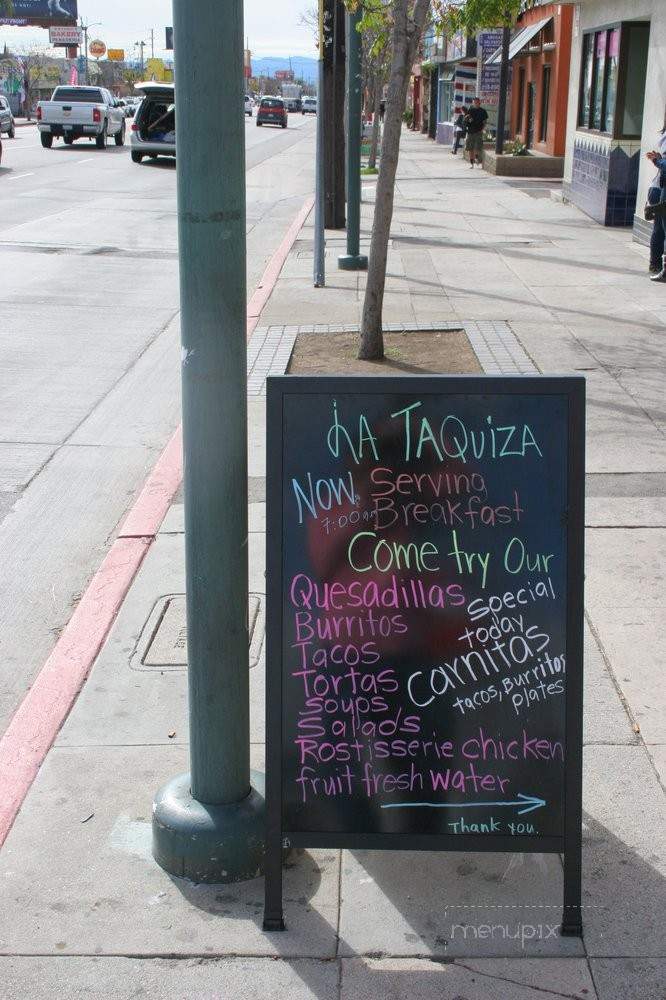 BAKERY
LA TAQUIZA
NOW Serving
7:00am Breakfast
Come try Our
Quesadillas
Burritos
Tacos
Tortas
Soups
Salads
Rostisserie chicken
fruit fresh water
Special
today
Carnitas
tacos, Burritos
plates
Thank you.
menupix